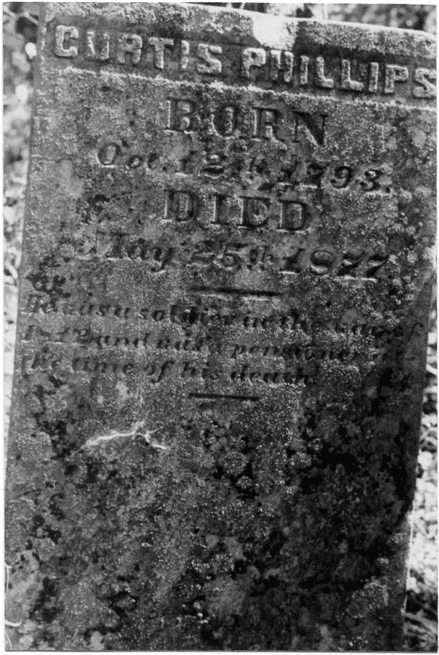 CURTIS PHILLIPS
BORN
Oct. 12th, 1793.
DIED
May 25th 1877
He was a soldier in the war of
1812 and was a pensioner at
the time of his death.